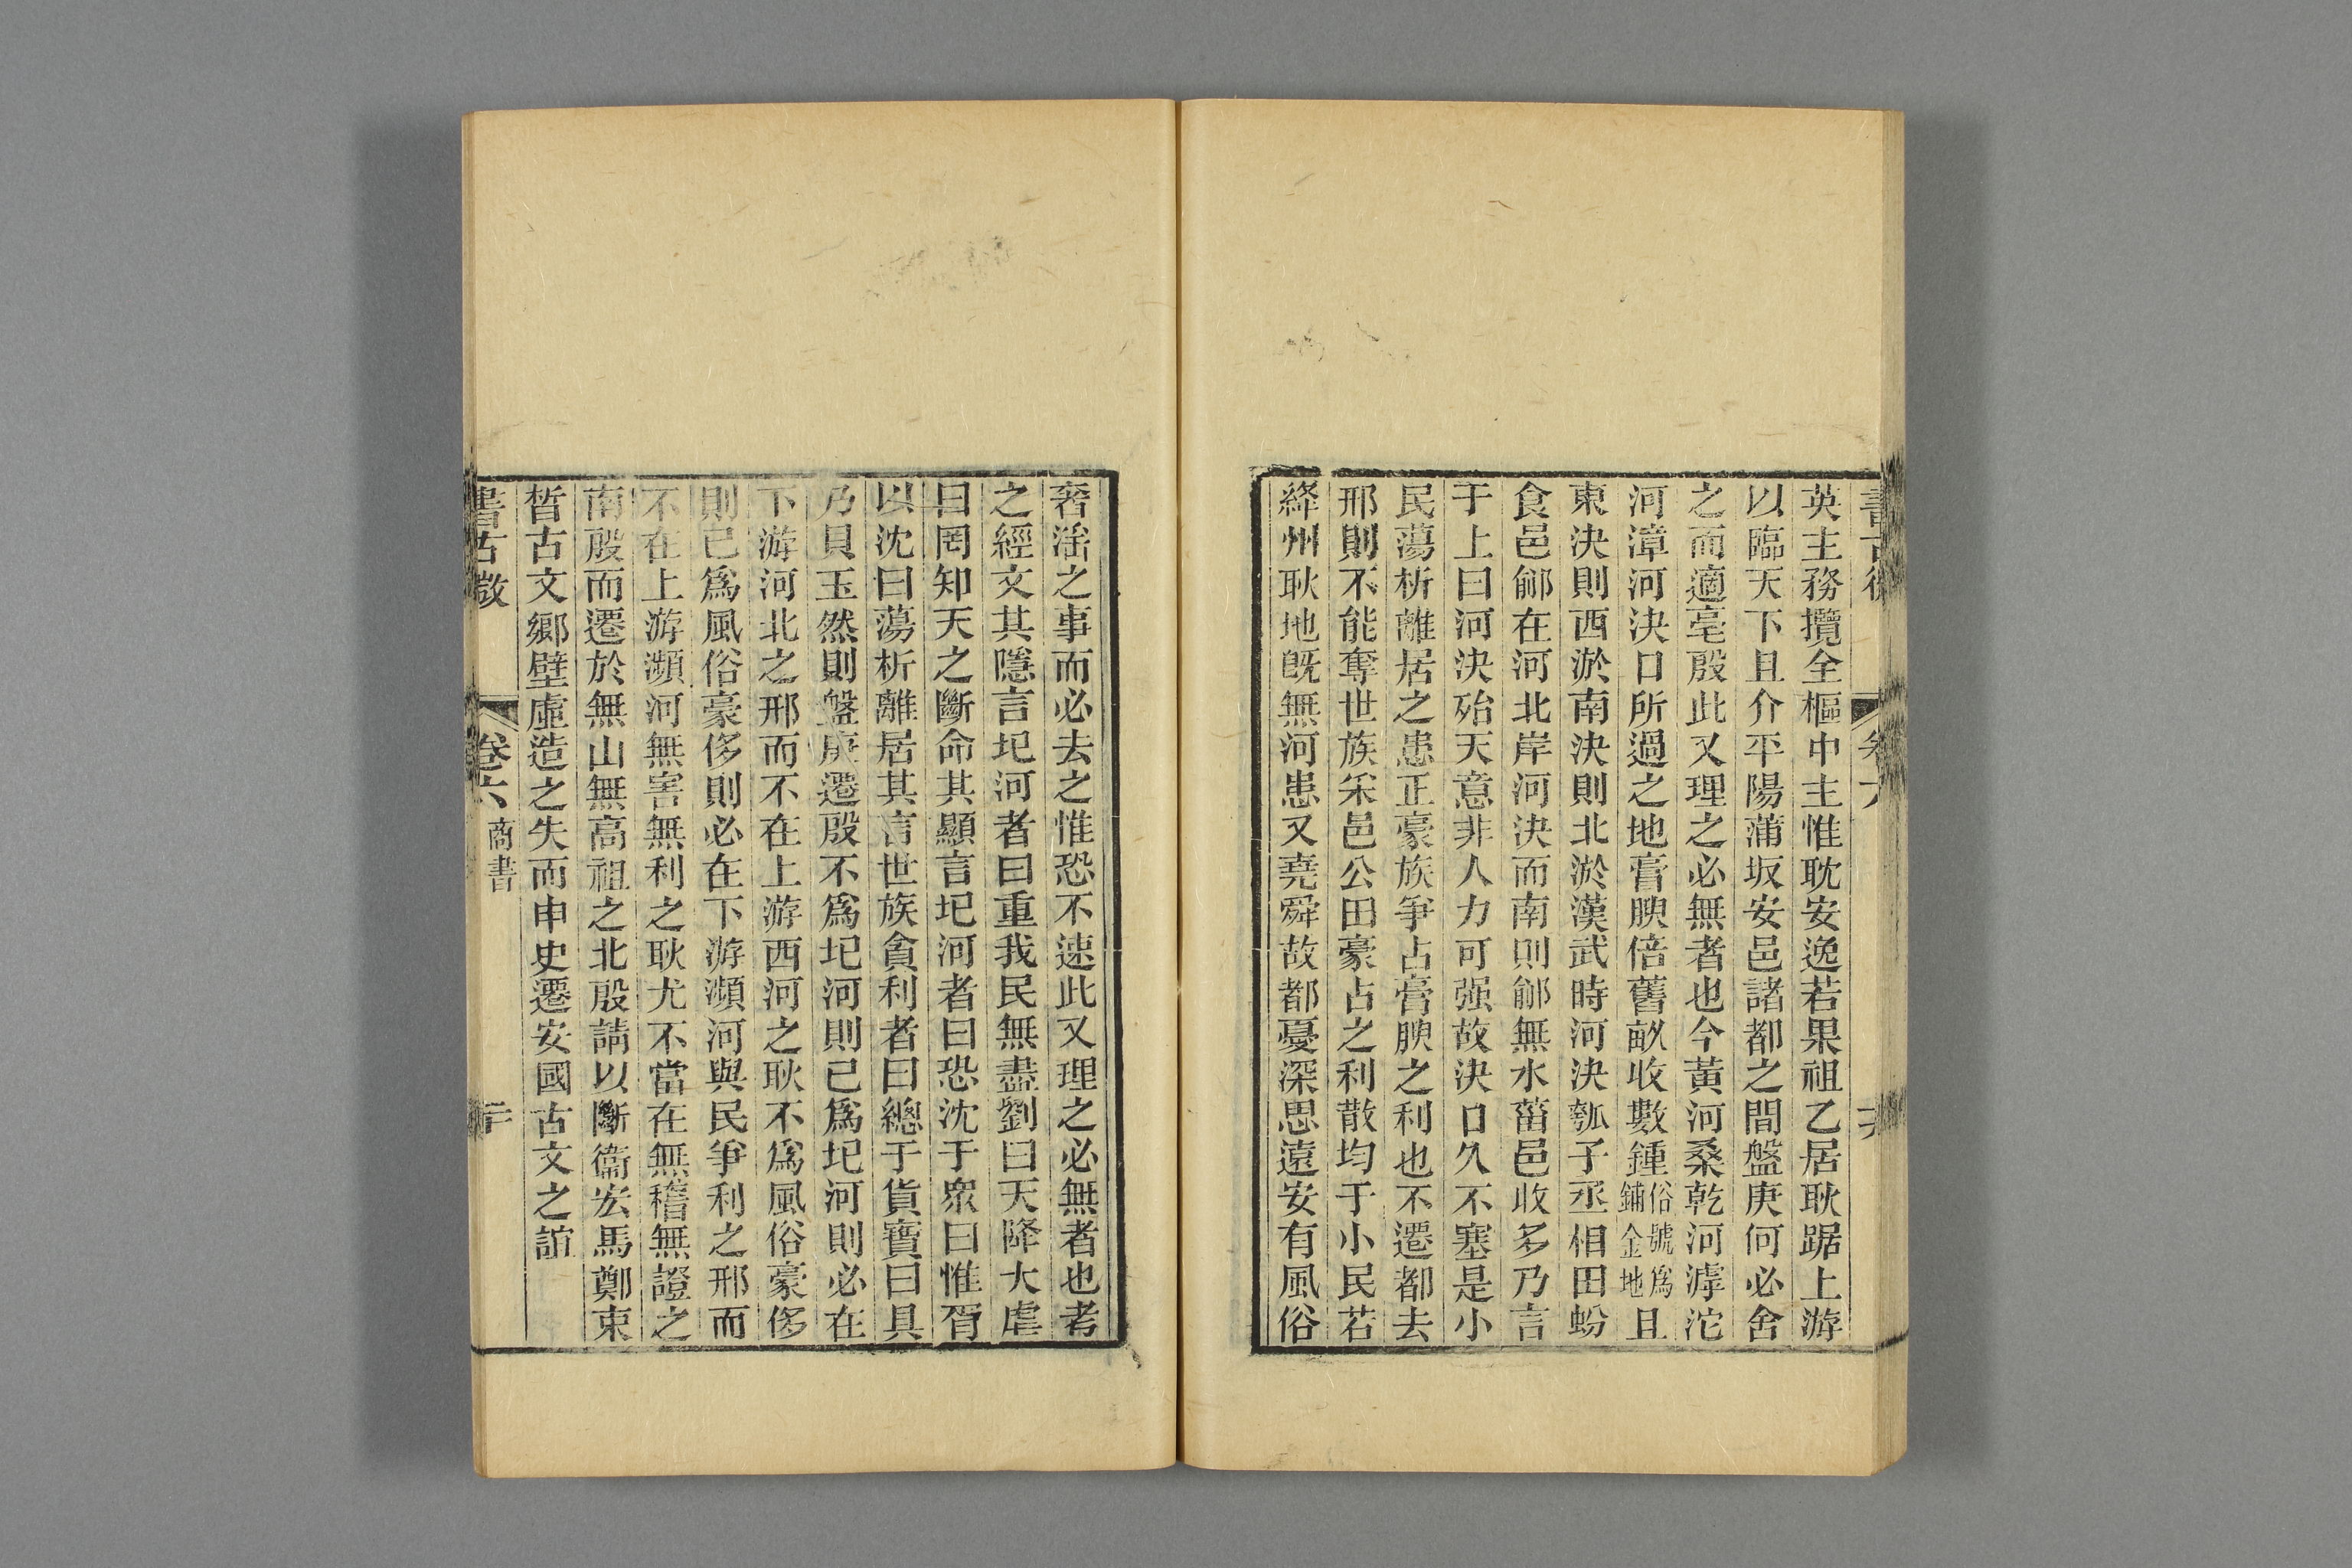 英主務攬全樞中主惟耽安逸若果祖乙居耿踞上游
以臨天下且介平陽蒲坂安邑諸都之間盤庚何必舍
之而適亳殷此又理之必無者也今黃河桑乾河滹沱
河漳河決口所過之地膏腴倍舊畝收數鍾俗號爲鋪金地且
東決則西淤南決則北淤漢武時河決瓠子丞相田蚡
食邑鄃在河北岸河決而南則鄃無水菑邑收多乃言
于上曰河決殆天意非人力可强故決口久不塞是小
民蕩析離居之患正豪族爭占膏腴之利也不遷都去
邢則不能奪世族采邑公田豪占之利散均于小民若
絳州耿地旣無河患又堯舜故都憂深思遠安有風俗
奢淫之事而必去之惟恐不速此又理之必無者也考
之經文其隱言圮河者曰重我民無盡劉曰天降大虐
曰罔知天之斷命其顯言圮河者曰恐沈于衆曰惟胥
以沈曰蕩析離居其言世族貪利者曰總于貨寶曰具
乃貝玉然則盤庚遷殷不爲圮河則已爲圮河則必在
下游河北之邢而不在上游西河之耿不爲風俗豪侈
則已爲風俗豪侈則必在下游瀕河與民爭利之邢而
不在上游瀕河無害無利之耿尤不當在無稽無證之
南殷而遷於無山無高祖之北殷請以斷衞宏馬鄭束
晳古文鄉壁虛造之失而申史遷安國古文之誼
書古微
卷六
商書